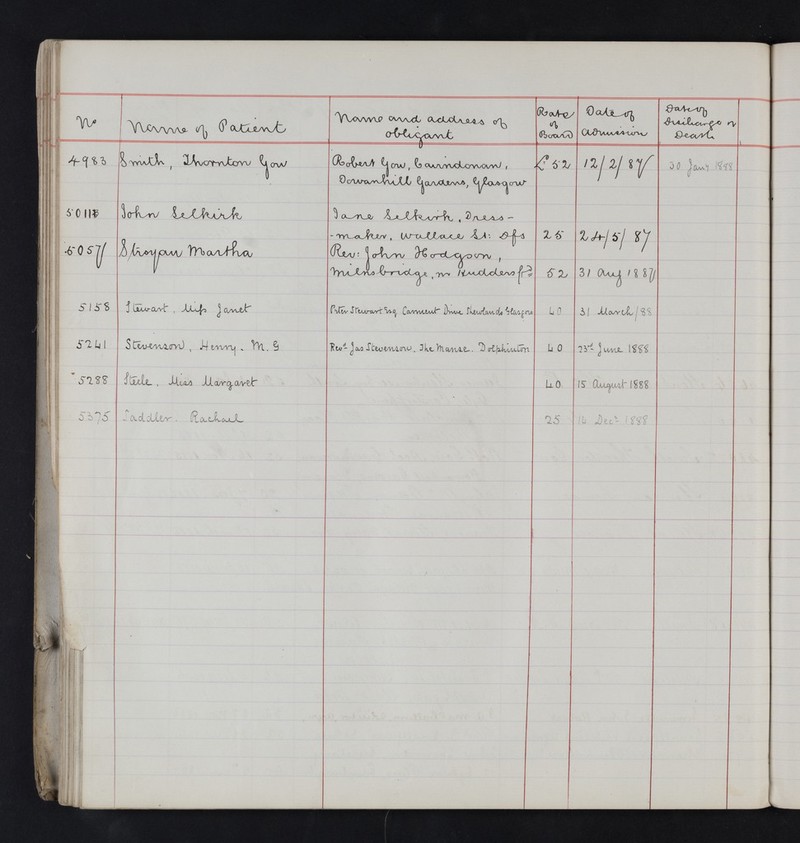 No Name of Patient Name and address of obligant Rate of Board Date of admission Date of Discharge or Death
4983 Smith, Thornton Gow Robert Gow, Cairndonan, £52 12/2/87 30 Jany 1888
Dowanhill Gardens, Glasgow
5011 John Selkirk Jane Selkirk, Dress-
-maker, Wallace St: Dfs 25 24/5/87
5057 Stroyan Martha Rev: John Hodgson,
Milnsbridge, nr Huddersfd 52 31 Aug 1887
5158 Stewart, Miss Janet Peter Stewart Esq Carment Drive Shawlands Glasgow 40 31 March/88
5241 Stevenson, Henry. M. G Revd Jas Stevenson. The Manse. Dolphinton 40 23rd June 1888
5288 Steele, Miss Margaret 40 15 August 1888
5375 Saddler. Rachael 25 16 Decr 1888